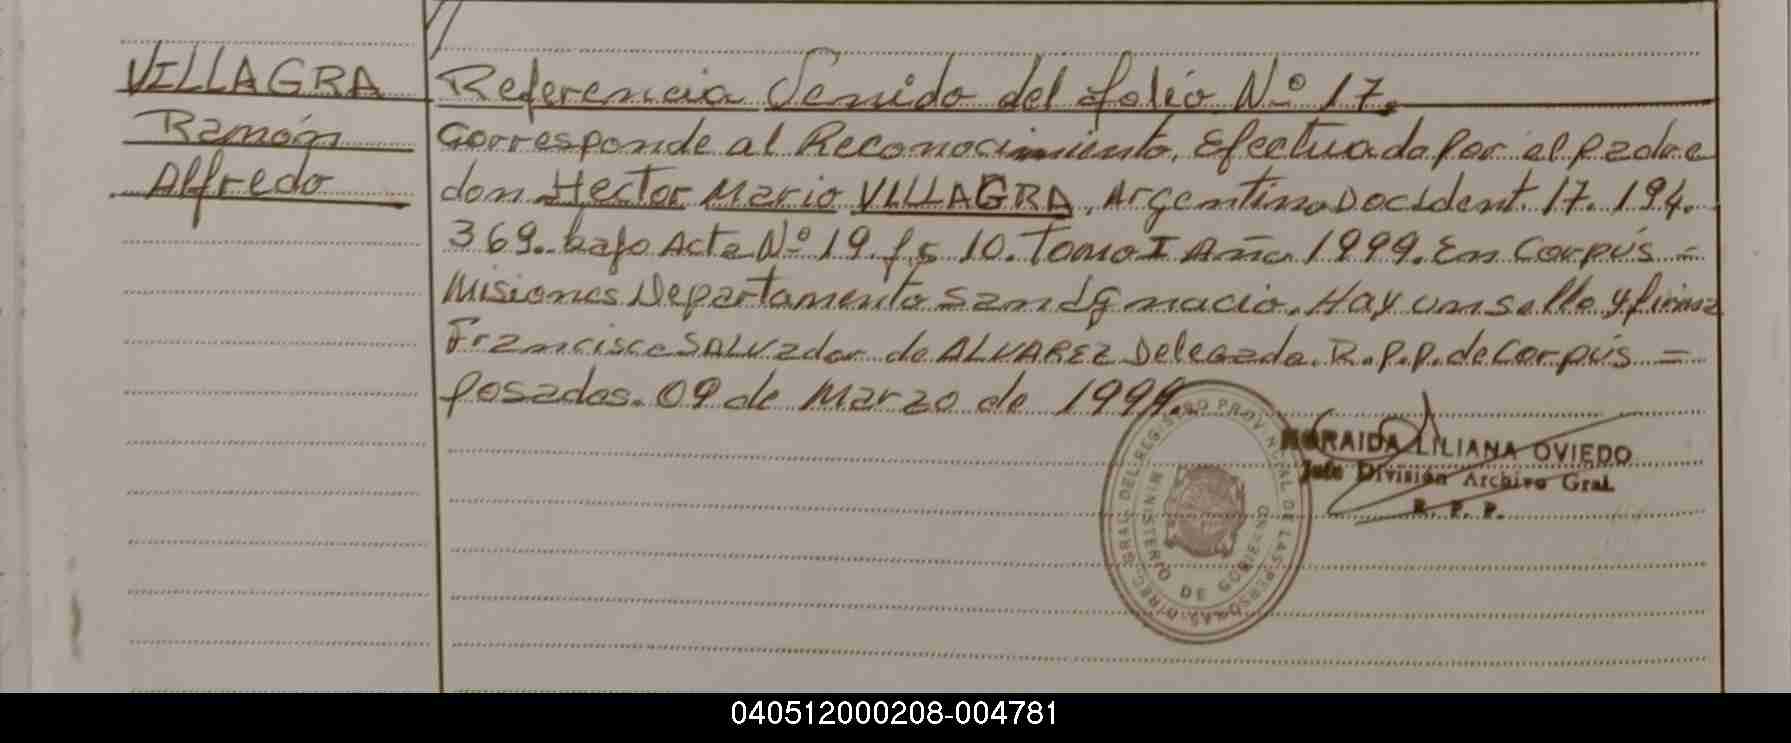 VILLAGRA
Ramón
Alfredo
Referencia Venido del folio Nº 17.
Corresponde al Reconocimiento, Efectuado por el padre
don Hector Mario VILLAGRA, Argentino Doc Ident. 17.194.
369. bajo Acta Nº 19. fs 10. Tomo I Año 1999. En Corpus =
Misiones Departamento San Ignacio. Hay un sello y firma
Francisco SALVador de ALVAREZ Delegada. R.P.P. de Corpus =
Posadas. 09 de Marzo de 1999.
DIREC. GRAL. DEL REGISTRO PROVINCIAL DE LAS PERSONAS
MINISTERIO DE GOBIERNO
LILIANA OVIEDO
Jefe División Archivo Gral.
R. P. P.
040512000208-004781